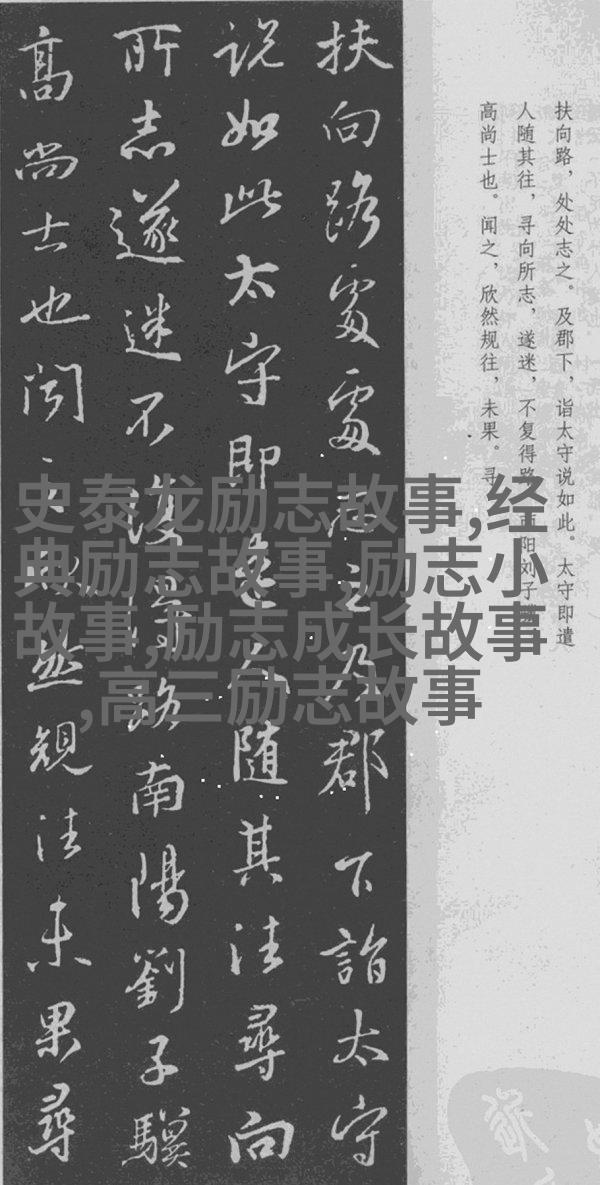 扶向路，处处志之。及郡下，诣太守说如此。太守即遣
人随其往，寻向所志，遂迷，不复得路。南阳刘子骥
高尚士也。闻之，欣然规往，未果。寻
扶向路處處志之及郡下詣太守
说如此太守即遣人随其往尋向
所志遂迷不復得路南陽劉子驥
高尚士也聞之欣然規往未果尋
史泰龙励志故事,经
典励志故事,励志小
故事,励志成长故事
,高三励志故事